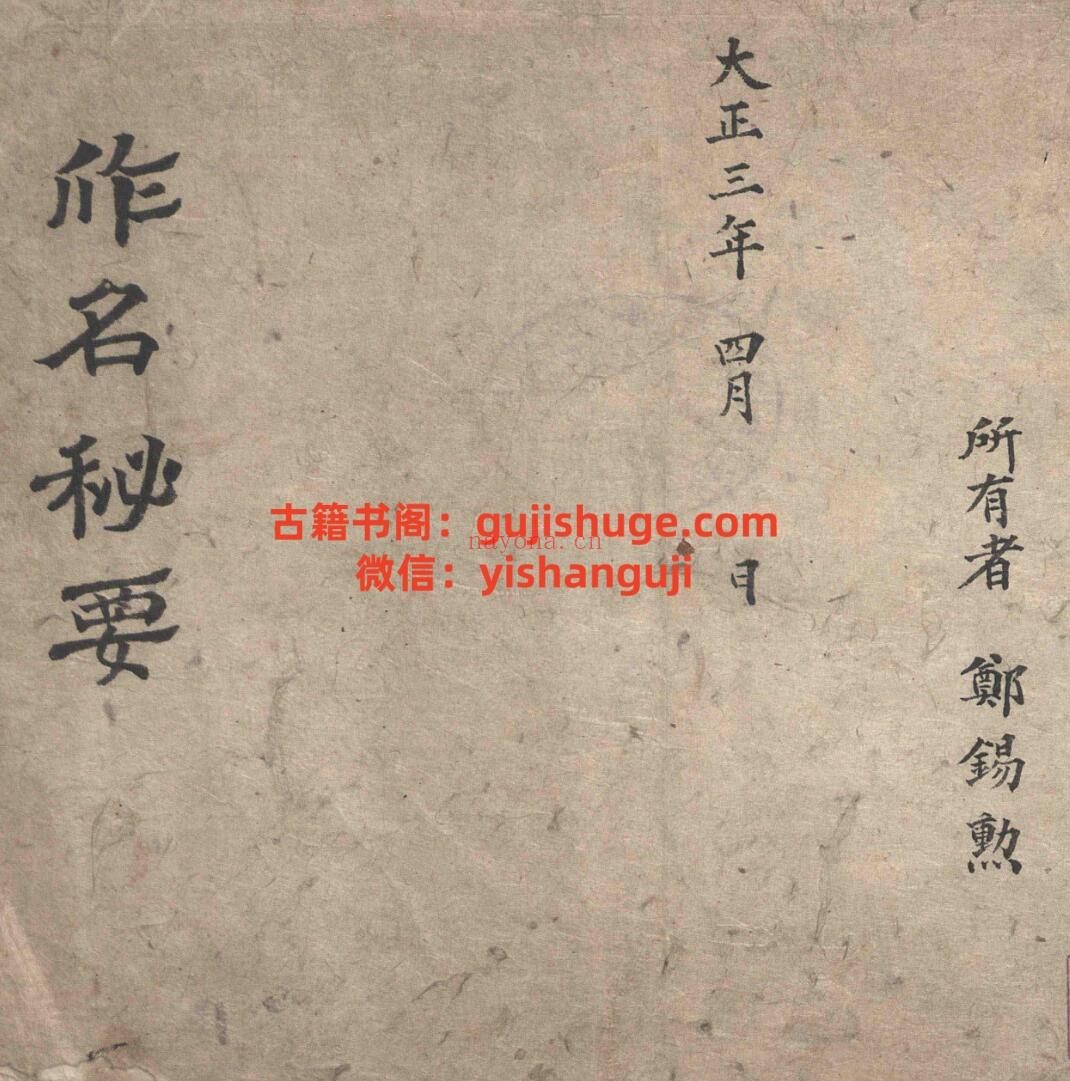 所有者 鄭錫勲
大正三年 四月 日
作名秘要
古籍书阁：gujishuge.com
nayona.cn
微信：yishanguji